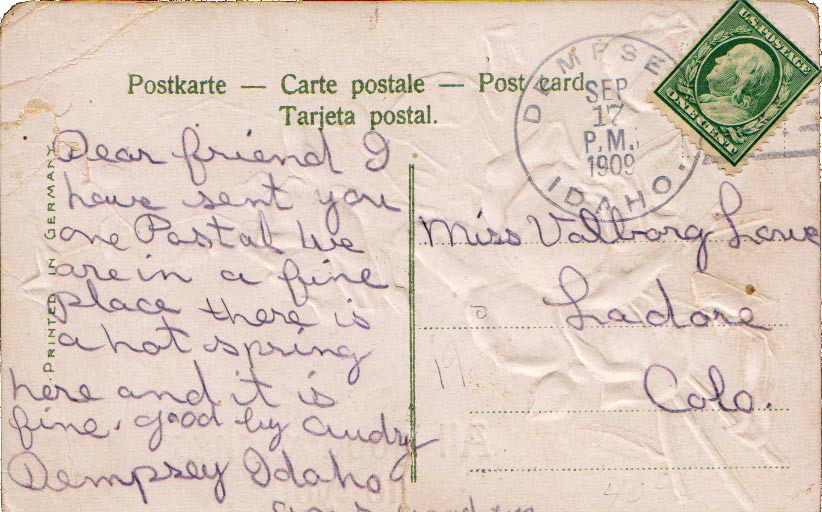 Postkarte — Carte postale — Post card.
Tarjeta postal.
U.S. POSTAGE
ONE CENT
DEMPSE
SEP
17
P.M.
1909
IDAHO.
PRINTED IN GERMANY
Dear friend I
have sent you
one Postal We
are in a fine
place there is
a hot spring
here and it is
fine. good by Audry
Dempsey Idaho
Miss Valborg
Ladore
Colo.
19